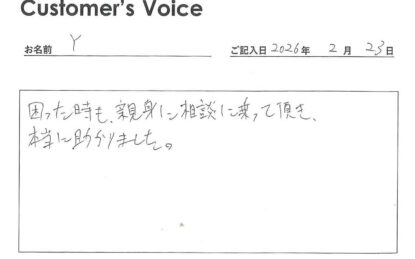 Customer's Voice
お名前 Y ご記入日 2026年 2月 23日
困った時も、親身に相談に乗って頂き、
本当に助かりました。